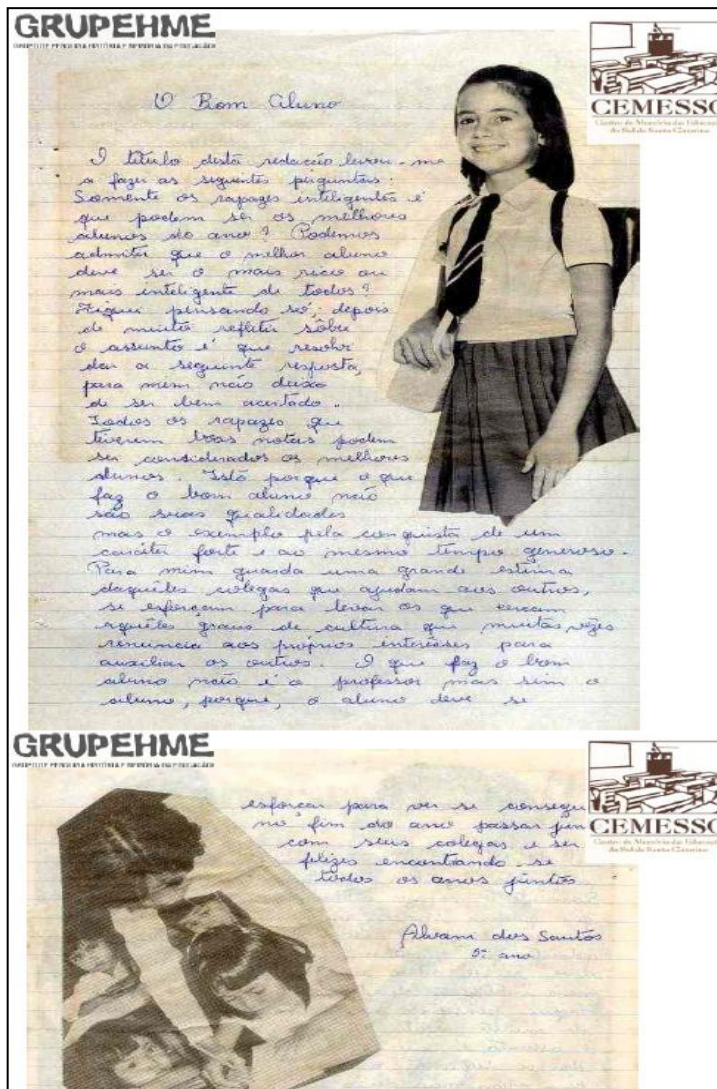 GRUPEHME
GRUPO DE PESQUISA HISTÓRIA E MEMÓRIA DA EDUCAÇÃO
CEMESSC
Centro de Memória da Educação
do Sul de Santa Catarina
O Bom Aluno
O título desta redação levou-me
a fazer as seguintes perguntas:
Somente os rapazes inteligentes é
que podem ser os melhores
alunos do ano? Podemos
admitir que o melhor aluno
deve ser o mais rico ou
mais inteligente de todos?
Fiquei pensando só; depois
de muito refletir sôbre
o assunto é que resolvi
dar a seguinte resposta,
para mim não deixa
de ser bem acertado.
Todos os rapazes que
tiverem boas notas podem
ser considerados os melhores
alunos. Istó porque o que
faz o bom aluno não
são suas qualidades
mas o exemplo pela conquista de um
caráter forte e ao mesmo tempo generoso.
Para mim guarda uma grande estima
daquêles colegas que ajudam aos outros,
se esforçam para levar os que cercam
aquêles graus de cultura que muitas vêzes
renuncia aos próprios interêsses para
auxiliar os outros. O que faz o bom
aluno não é o professor mais sim o
aluno, porque, o aluno deve se
GRUPEHME
GRUPO DE PESQUISA HISTÓRIA E MEMÓRIA DA EDUCAÇÃO
CEMESSC
Centro de Memória da Educação
do Sul de Santa Catarina
esforçar para ver se consegue
no fim do ano passar jun
com seus colegas e ser
felizes encontrando-se
todos os anos juntos
dos Santos
5º ano